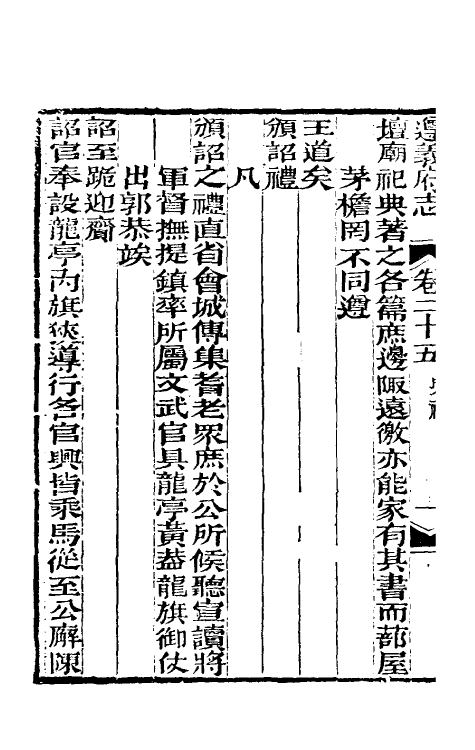 遵義府志　卷二十五　典禮　一
壇廟祀典著之各篇庶邊陬遠徼亦能家有其書而蔀屋
茅檐罔不同遵
王道矣
頒詔禮
凡
頒詔之禮直省會城傳集耆老眾庶於公所候聽宣讀將
軍督撫提鎮率所屬文武官具龍亭黃葢龍旗御仗
出郭恭竢
詔至跪迎齎
詔官奉設龍亭內旗仗導行各官興皆乘馬從至公廨陳